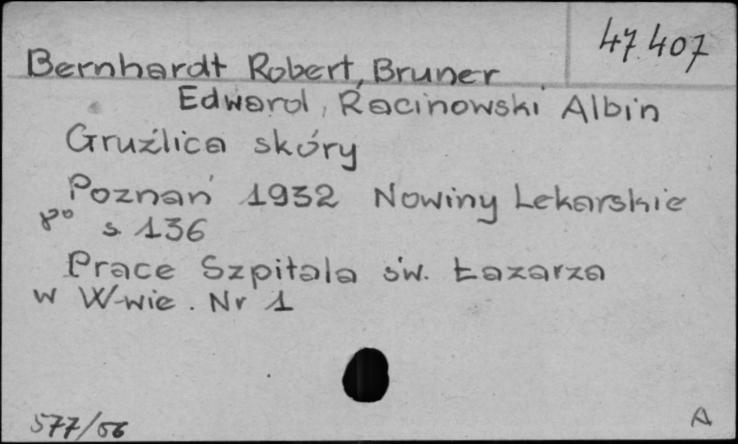 47.407
Bernhardt Robert, Bruner
Edward, Racinowski Albin
Gruźlica skóry
Poznań 1932 Nowiny Lekarskie
8° s 136
Prace Szpitala św. Łazarza
w W-wie. Nr 1
577/56
A